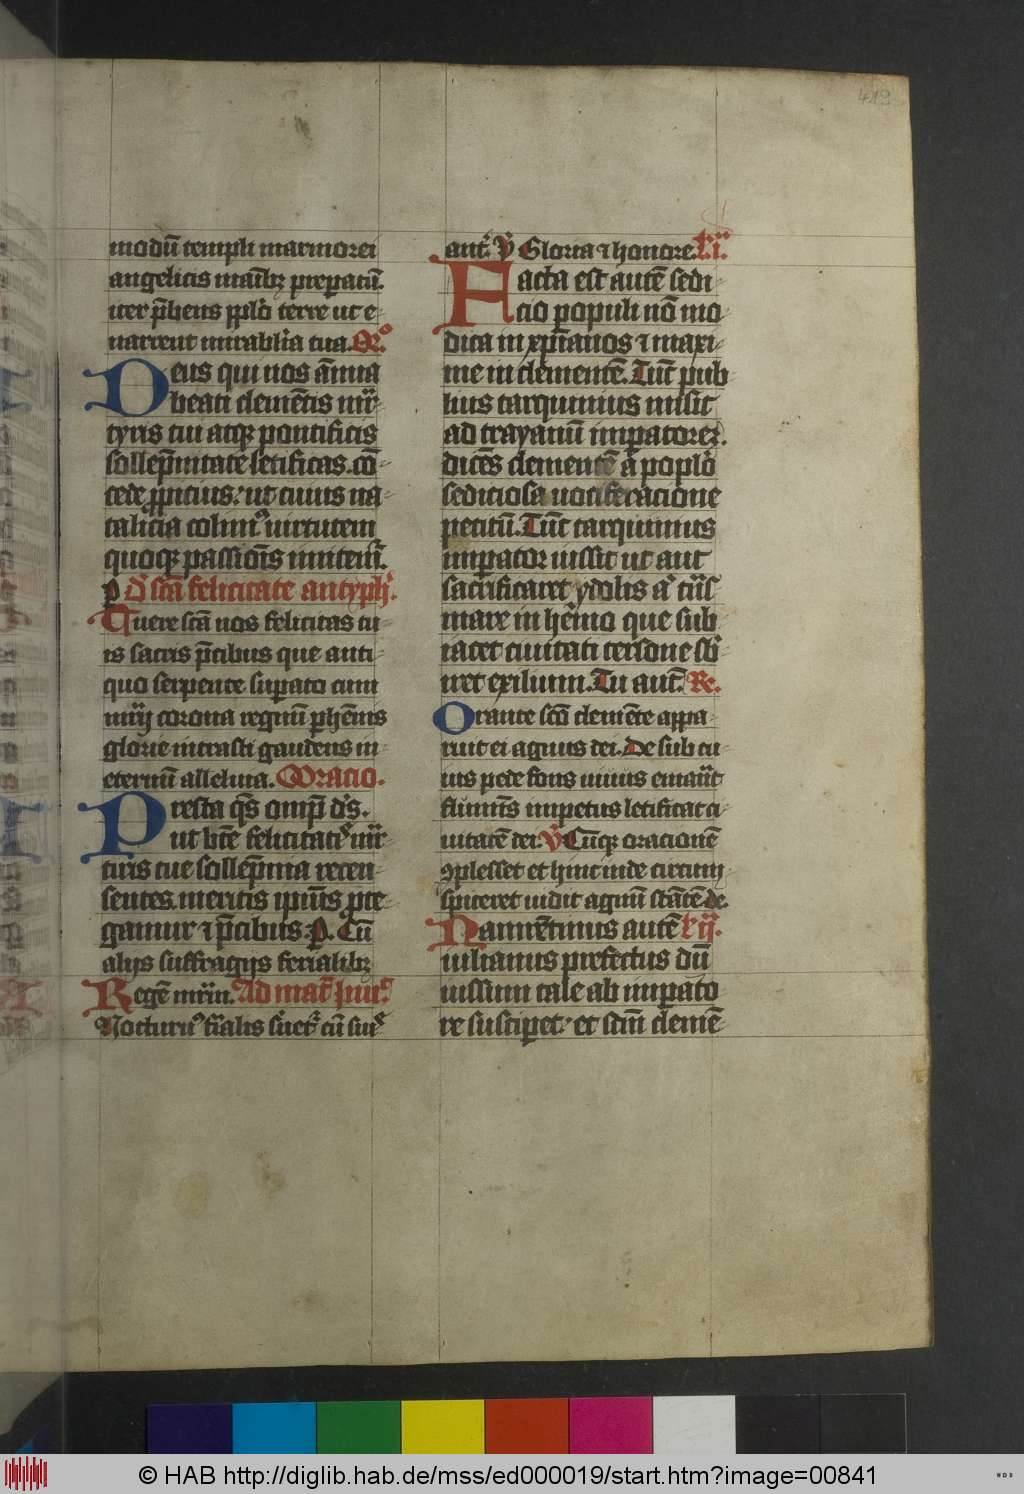 419
modū templi marmorei
angelicis manibꝫ preparatū.
iter p̄bens pplo terre ut e-
narrent mirabilia tua. Or̄o
Deus qui nos ānua
beati clemētis mr̄-
tyris tui atqꝫ pontificis
sollēpnitate letificas. cō-
cede ꝓpicius. ut cuius na-
talicia colimꝰ uirtutem
quoqꝫ passiōis imitemᷣ.
p̄ Dē scā felicitate antyph᷒.
Tuere scā nos felicitas tu-
is sacris p̄cibus que anti-
quo serpente supato cum
uiij corona regnū ꝑhēnis
glorie intrasti gaudens in
eternū alleluia. Oracio.
Presta q̄s omp̄ d̄s.
ut btē felicitatiꝰ mr̄-
tiris tue sollēpnia recen-
sentes. meritis ipiūs prote-
gamur ⁊ p̄cibus. p. Cū
alijs suffragijs ferialibꝫ
Regē mr̄im. Ad mat̄ Inui.
Nocturnꝰ
ant᷒. V̄ Gloria ⁊ honore. L̄ i.
Facta est autē sedi-
cio populi nō mo-
dica in xp̄ianos ⁊ maxi-
me in clementē. Tūc pub-
lius tarquinius misit
ad trayanū imperatorē.
dicēs clementē a poplo
sediciosa uociferacione
petitū. Tūc tarquinius
imperator iussit ut aut
sacrificaret ydolis aᷣ trās
mare in hēmo que sub-
iacet ciuitati cersone sb-
iret exilium. Tu aut̄. R̄e.
Orante scō clemēte appa-
ruit ei agnus dei. De sub cu-
ius pede fons uiuus emanat
fluminis impetus letificat ci-
uitatē dei. V̄ Cūqꝫ oracionē
ꝯplesset et hinc inde circum-
spiceret uidit agnū stātē. de.
Namentinus autē L̄ ij.
iulianus prefectus dū
iussum tale ab imperato-
re susciperet. et scm̄ clemē-
© HAB http://diglib.hab.de/mss/ed000019/start.htm?image=00841